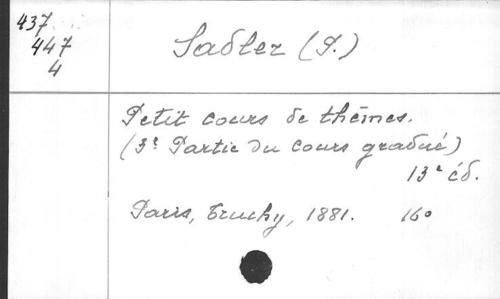 437
447
4
Sadler (P.)
Petit cours de thèmes.
(3e Partie du cours gradué)
13e éd.
Paris, Truchy, 1881. 16o